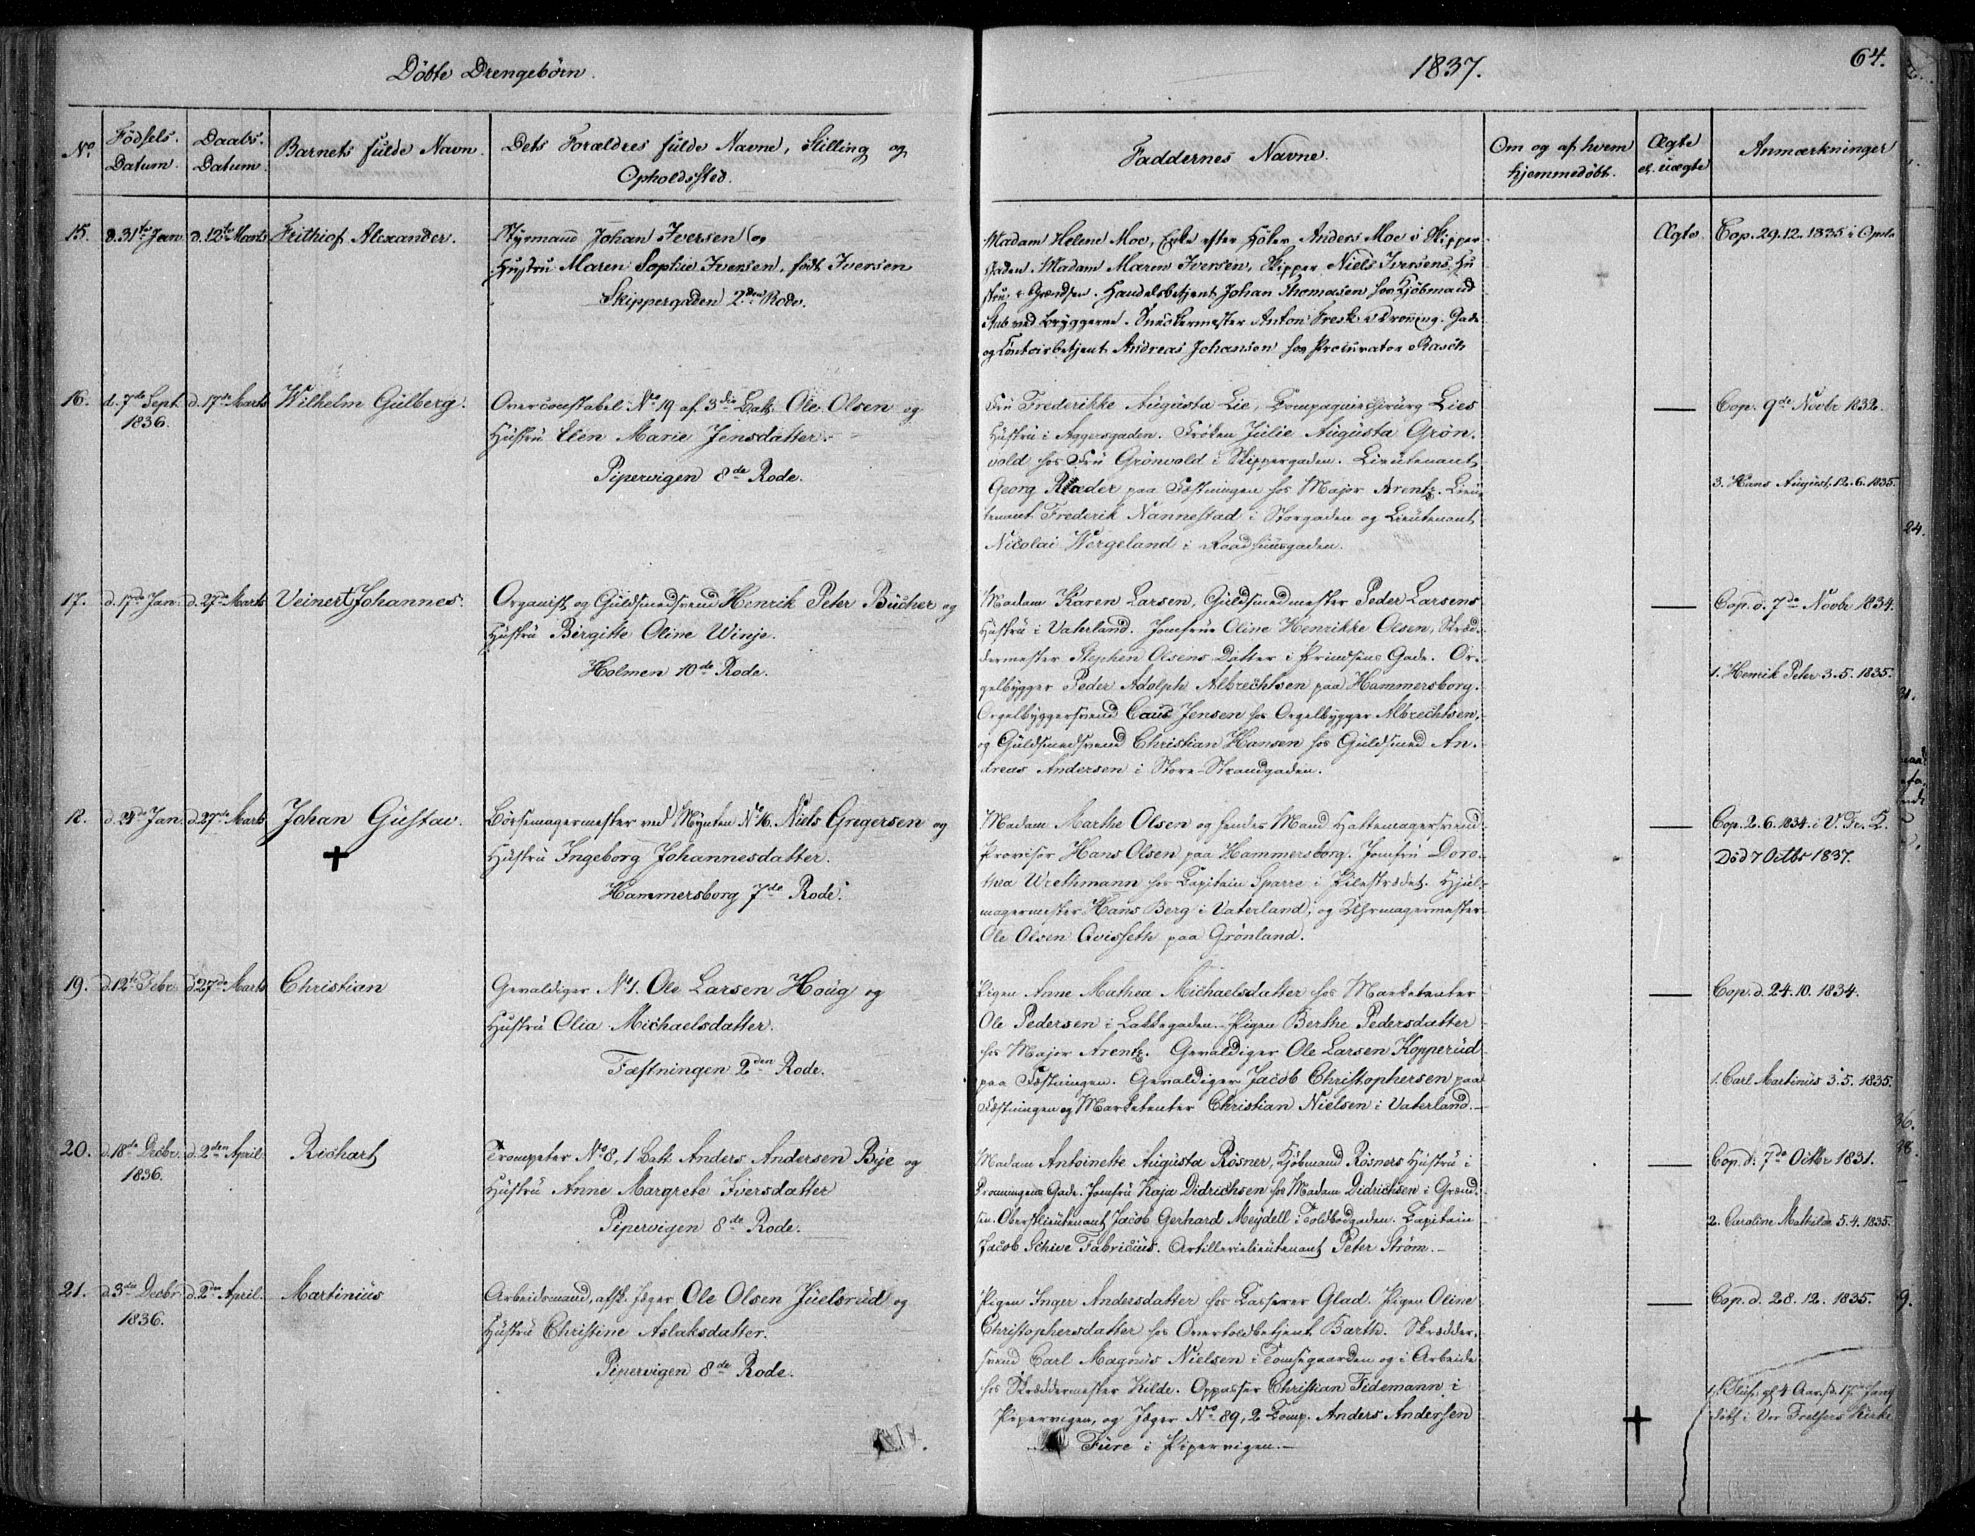 Døbte Drengebørn.
1837.
64.
No.
Fødsels-
Datum.
Daabs-
Datum.
Barnets fulde Navn.
Dets Forældres fulde Navne, Stilling og
Opholdssted.
Faddernes Navne.
Om og af hvem
hjemmedøbt.
Ægte
el. uægte
Anmærkninger
15.
d. 31te Jan
d. 12te Marts
Frithiof Alexander.
Styrmand Johan Iversen og
Hustru Maren Sophie Iversen, født Iversen
Skippergaden 2den Rode.
Madam Helene Moe, Enke efter Høker Anders Moe i Skipper
gaden. Madam Maren Iversen, Skipper Niels Iversens Hu
stru i Grændsen. Handelsbetjent Johan Thomasen hos Kjøbmand
Stub ved Bryggerne. Snedkermester Anton Fresk i Droning. Gade
og Contoirbetjent Andreas Johansen hos Procurator Rasch
Ægte
Cop. 29.12.1835 i Opslo
16.
d. 7de Sept.
1836.
d. 17de Marts
Wilhelm Gulberg.
Overconstabel No 19 af 3die Bat. Ole Olsen og
Hustru Elen Marie Jensdatter.
Pipervigen 8de Rode.
Fru Frederikke Augusta Lie, Compagniechirurg Lies
Hustru i Aggersgaden. Frøken Julie Augusta Grøn-
vold hos Fru Grønvold i Skippergaden. Lieutenant
Georg Ræder paa Fæstningen hos Major Arentz. Lieu
tenant Frederik Nannestad i Storgaden og Lieutenant
Nicolai Wergeland i Raadhuusgaden.
Cop. 9de Novbr 1832.
3. Hans August, 12.6.1835.
17.
d. 17de Jan.
d. 27de Marts
Veinert Johannes.
Organist og Guldsmedsvend Henrik Peter Bucher og
Hustru Birgitte Oline Winje.
Holmen 10de Rode.
Madam Karen Larsen, Guldsmedmester Peder Larsens
Hustru i Vaterland. Jomfrue Oline Henrikke Olsen, Skræd-
dermester Stephen Olsens Datter i Prindsens Gade. Or-
gelbygger Peder Adolph Albrechtsen paa Hammersborg.
Orgelbyggersvend Claus Jensen hos Orgelbygger Albrechtsen,
og Guldsmedsvend Christian Hansen hos Guldsmed An-
dreas Andersen i Store-Strandgaden.
Cop. d. 7de Novbr 1834.
1. Henrik Peter 3.5.1835.
18.
d. 24de Jan.
d. 27de Marts
Johan Gustav.
Børsemagermester ved Mynten No 16. Niels Gregersen og
Hustru Ingeborg Johannesdatter.
Hammersborg 7de Rode.
Madam Marthe Olsen og hendes Mand Hattemagersvend
Provisor Hans Olsen paa Hammersborg. Jomfru Doro-
thea Wrethmann hos Capitain Sparre i Pilestrædet. Hjul-
magermester Hans Berg i Vaterland, og Uhrmagermester
Ole Olsen Qvisseth paa Grønland.
Cop. 2.6.1834. i V. Fr. K.
Død 7 Octbr 1837.
19.
d. 12te Febr.
d. 27de Marts
Christian
Gevaldiger No 1. Ole Larsen Houg og
Hustru Olia Michaelsdatter.
Fæstningen 2den Rode.
Pigen Anne Mathea Michaelsdatter hos Marketenter
Ole Pedersen i Lakkegaden. Pigen Berthe Pedersdatter
hos Major Arentz. Gevaldiger Ole Larsen Kopperud
paa Fæstningen. Gevaldiger Jacob Christophersen paa
Fæstningen og Marketenter Christian Nielsen i Vaterland.
Cop. d. 24.10.1834.
1. Carl Martinius 3.5.1835.
20.
d. 18de Decbr.
1836.
d. 2den April
Richart
Trompeter No 8, 1 Batt. Anders Andersen Bye og
Hustru Anne Margrete Iversdatter
Pipervigen 8de Rode.
Madam Antoinette Augusta Rosner, Kjøbmand Rosners Hustru i
Dronningens Gade. Jomfru Kaja Didrichsen hos Madam Didrichsen i Grænd-
sen. Oberstlieutenant Jacob Gerhard Meydell i Toldbodgaden. Capitain
Jacob Schive Fabricius. Artillerielieutenant Peter Strøm.
Cop. d. 7de Octbr 1831.
2. Caroline Mathilde 5.4.1835.
21.
d. 3die Decbr.
1836.
d. 2den April.
Martinius
Arbeidsmand, afsk. Jæger Ole Olsen Juelsrud og
Hustru Christine Aslaksdatter.
Pipervigen 8de Rode.
Pigen Inger Andersdatter hos Casserer Glad. Pigen Oline
Christophersdatter hos Overtoldbetjent Barth. Skrædder-
svend Carl Magnus Nielsen i Tomtegaarden og i Arbeide
hos Skræddermester Kilde. Oppasser Christian Tidemann i
Pipervigen, og Jæger No 89, 2 Comp. Anders Andersen
Fure i Pipervigen.
Cop. d. 28.12.1835.
døbt i Vor Frelsers Kirke